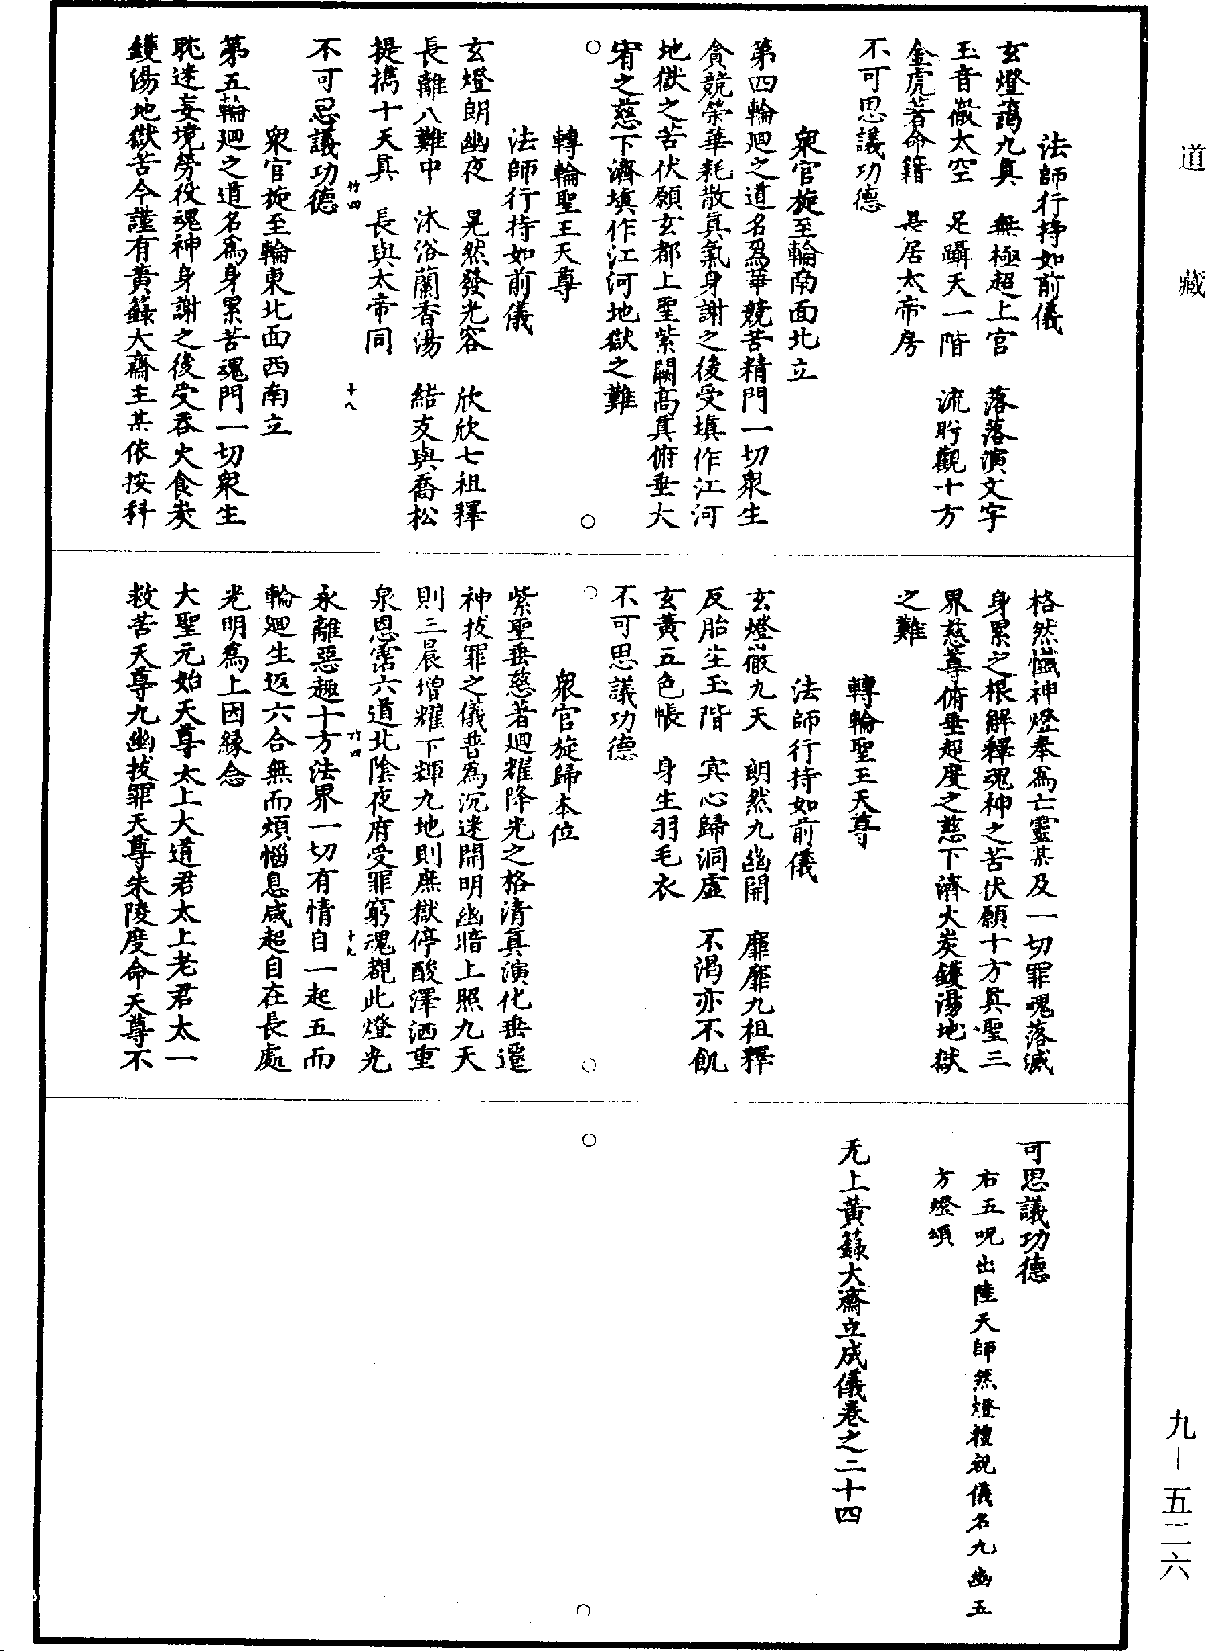 道藏
法師行持如前儀
玄燈藹九真　無極超上官　落落演文字
玉音徹太空　足躡天一階　流眄觀十方
金虎著命籍　長居太帝房
不可思議功德
眾官旋至輪南面北立
第四輪廻之道名爲華競苦精門一切眾生
貪競榮華耗散真氣身謝之後受填作江河
地獄之苦伏願玄都上聖紫闕高真俯垂大
宥之慈下濟填作江河地獄之難
轉輪聖王天尊
法師行持如前儀
玄燈朗幽夜　晃然發光容　欣欣七祖釋
長離八難中　沐浴蘭香湯　結友與喬松
提攜十天真　長與太帝同
竹四　十八
不可思議功德
眾官旋至輪東北面西南立
第五輪廻之道名爲身累苦魂門一切眾生
耽迷妄境勞役魂神身謝之後受吞火食炭
鑊湯地獄苦今謹有黃籙大齋主某依按科
格然懺神燈奉爲亡靈某及一切罪魂落滅
身累之根解釋魂神之苦伏願十方真聖三
界慈尊俯垂超度之慈下濟火炭鑊湯地獄
之難
轉輪聖王天尊
法師行持如前儀
玄燈徹九天　朗然九幽開　靡靡九祖釋
反胎生玉階　冥心歸洞虛　不渴亦不飢
玄黃五色帳　身生羽毛衣
不可思議功德
眾官旋歸本位
紫聖垂慈著廻耀降光之格清真演化垂遷
神拔罪之儀普爲沉迷開明幽暗上照九天
則三晨增耀下輝九地則庶獄停酸澤洒重
泉恩霈六道北陰夜府受罪窮魂覩此燈光
竹四　十九
永離惡趣十方法界一切有情自一起五而
輪廻生返六合無而煩惱息咸超自在長處
光明爲上因緣念
大聖元始天尊太上大道君太上老君太一
救苦天尊九幽拔罪天尊朱陵度命天尊不
可思議功德
右五呪出陸天師然燈禮祝儀名九幽五
方燈頌
无上黃籙大齋立成儀卷之二十四
九－五二六